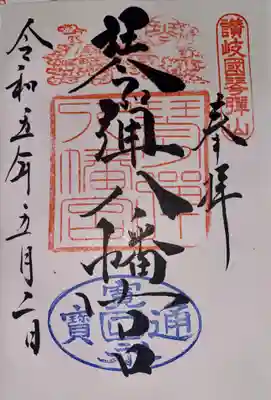 讃岐國琴彈山
奉拝
琴彈八幡宮
令和五年五月二日
寛永通寳